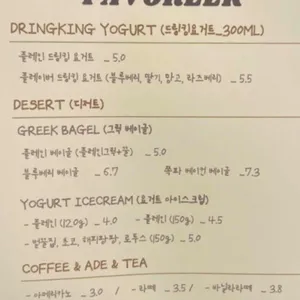 DRINGKING YOGURT (드링킹요거트_300ML)
플레인 드링킹 요거트 _ 5.0
플레이버 드링킹 요거트 (블루베리, 딸기, 망고, 라즈베리) _ 5.5
DESERT (디저트)
GREEK BAGEL (그릭 베이글)
플레인 베이글 (플레인그릭+꿀) _ 5.0
블루베리 베이글 _ 6.7 쪽파 베이컨 베이글 _7.3
YOGURT ICECREAM (요거트 아이스크림)
- 플레인 (120g) _ 4.0 - 플레인 (150g) _ 4.5
- 벌꿀집, 초코, 해피팡팡, 로투스 (150g) _ 5.0
COFFEE & ADE & TEA
- 아메리카노 _ 3.0 / - 라떼 _ 3.5 / - 바닐라라떼 _ 3.8